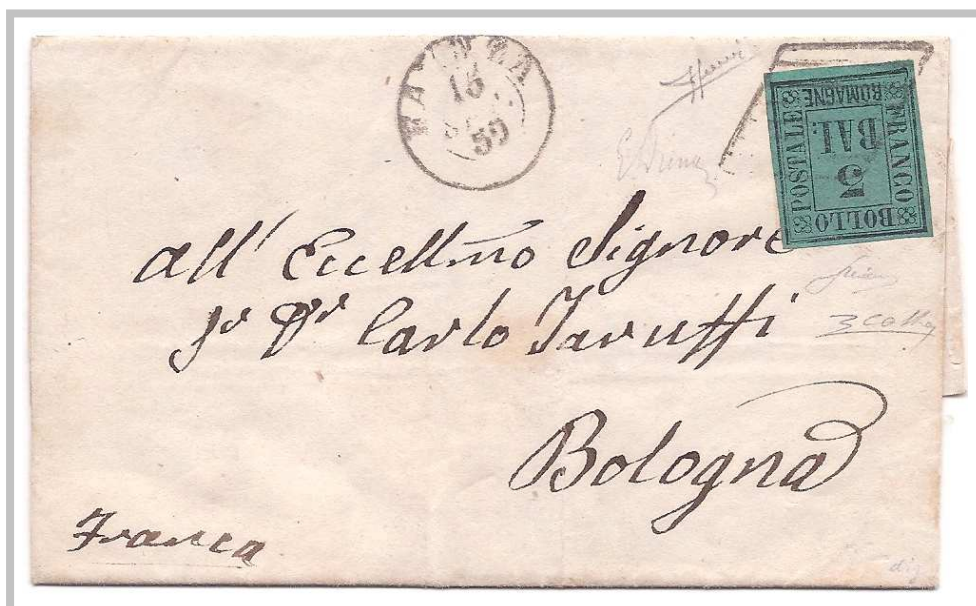 FAENZA
15
59
FRANCO
BOLLO
POSTALE
ROMAGNE
BAI.
3
All' Eccellmo Signore
Sr Dr Carlo Taruffi
Bologna
Franca